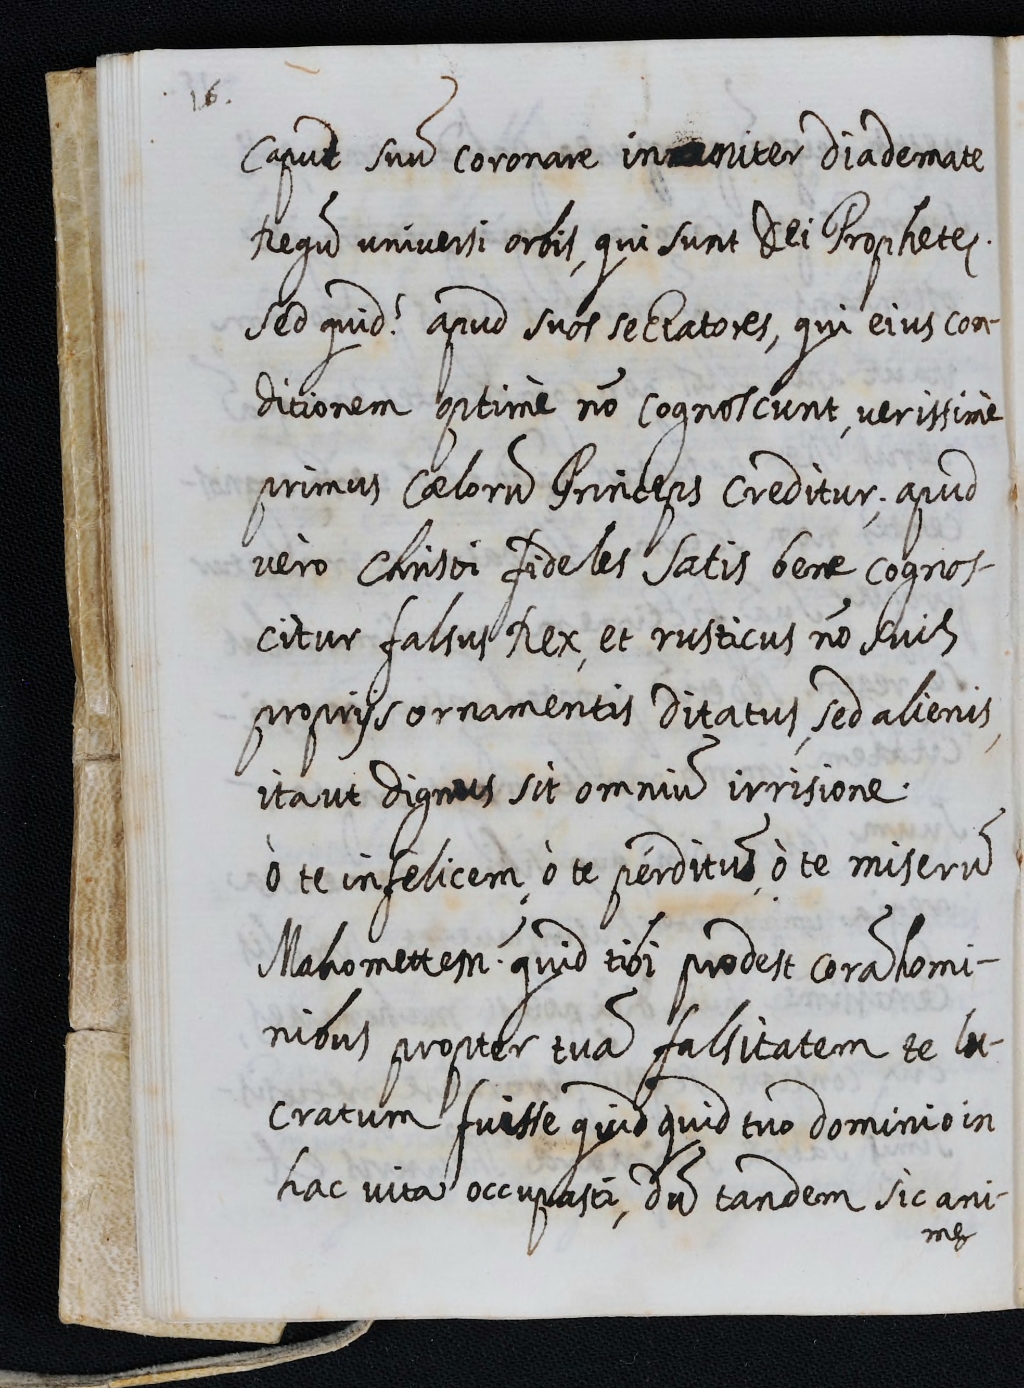 16.
Caput suũ coronare inaniter diademate
Regũ universi orbis, qui sunt Dei Prophetę.
sed quid? apud suos sectatores, qui eius con-
ditionem optimè nõ cognoscunt, verissimè
primus Cælorũ Princeps creditur; apud
vèro Christi fideles satis bene cognos-
citur falsus Rex, et rusticus nõ suis
proprijs ornamentis ditatus, sed alienis,
itaut dignus sit omniũ irrisione.
ò te infelicem, ò te pérditũ, ò te miserũ
Mahomettem. quid tibi prodest corã homi-
nibus propter tuã falsitatem te lu-
cratum fuisse quidquid tuo dominio in
hac vita occupasti, dũ tandem sic ani-
mę